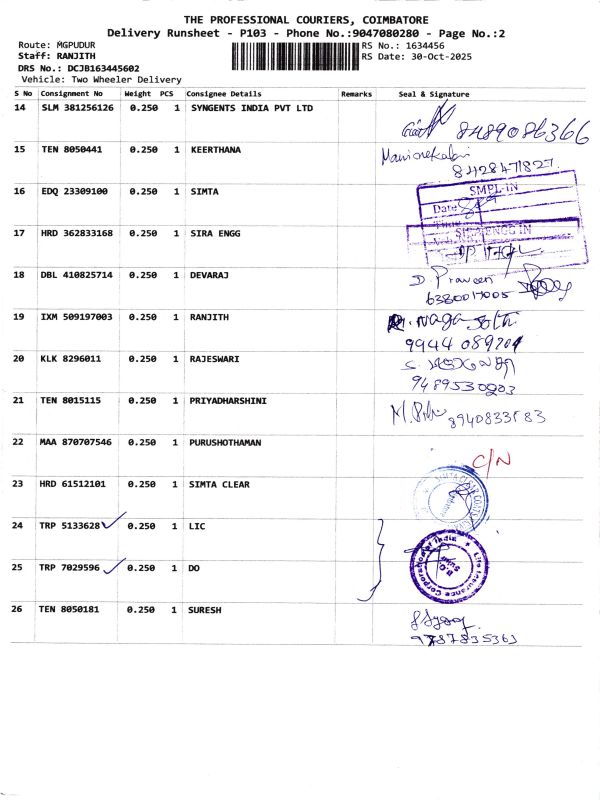 THE PROFESSIONAL COURIERS, COIMBATORE
Delivery Runsheet - P103 - Phone No.:9047080280 - Page No.:2
Route: MGPUDUR
RS No.: 1634456
Staff: RANJITH
RS Date: 30-Oct-2025
DRS No.: DCJB163445602
Vehicle: Two Wheeler Delivery
S No Consignment No Weight PCS Consignee Details Remarks Seal & Signature
14 SLM 381256126 0.250 1 SYNGENTS INDIA PVT LTD 8489086366
15 TEN 8050441 0.250 1 KEERTHANA
8428471827
16 EDQ 23309100 0.250 1 SIMTA SMPL-IN
Date
17 HRD 362833168 0.250 1 SIRA ENGG
18 DBL 410825714 0.250 1 DEVARAJ D. Praveen
6380017005
19 IXM 509197003 0.250 1 RANJITH
9944089204
20 KLK 8296011 0.250 1 RAJESWARI
9489530203
21 TEN 8015115 0.250 1 PRIYADHARSHINI
22 MAA 870707546 0.250 1 PURUSHOTHAMAN C/N
23 HRD 61512101 0.250 1 SIMTA CLEAR
24 TRP 5133628 0.250 1 LIC
25 TRP 7029596 0.250 1 DO Life Insurance Corporation of India
26 TEN 8050181 0.250 1 SURESH
9787835363